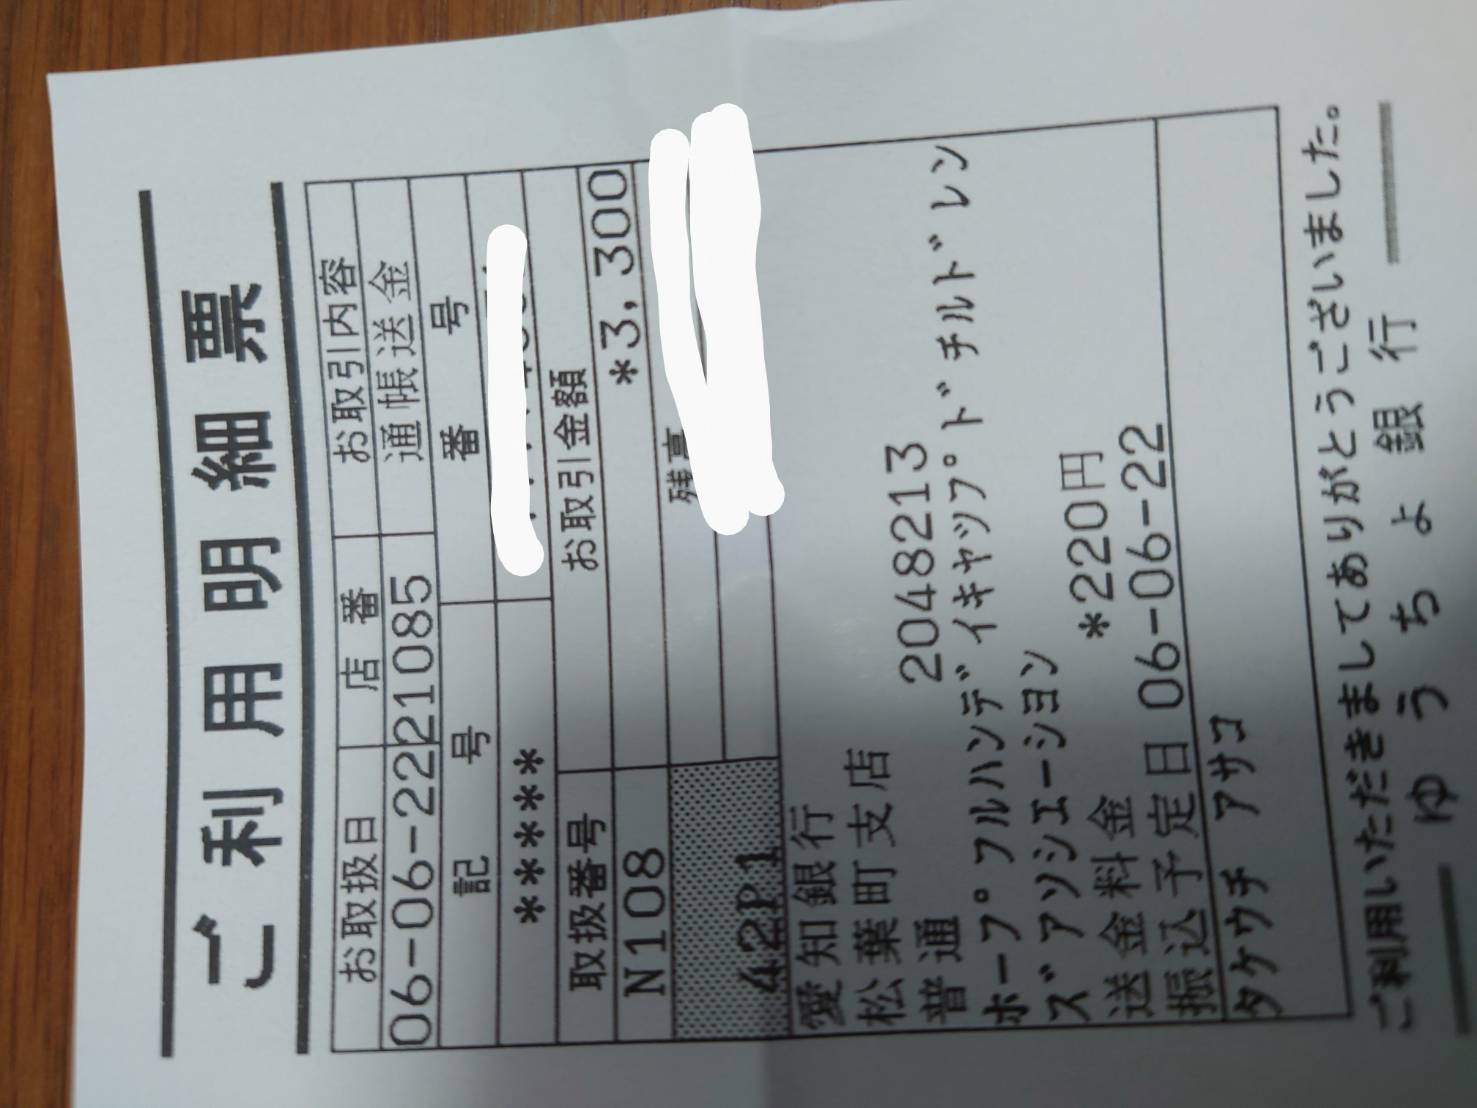 ご利用明細票
お取扱日 店番 お取引内容
06-06-22 221085 通帳送金
記号 番号
*****
取扱番号 お取引金額
N108 *3,300
残高
42P1
愛知銀行
松葉町支店
普通 2048213
ホープフルハンディキャップドチルドレン
ズアソシエーシヨン
送金料金 *220円
振込予定日 06-06-22
タケウチ アサコ
ご利用いただきましてありがとうございました。
ゆうちょ銀行